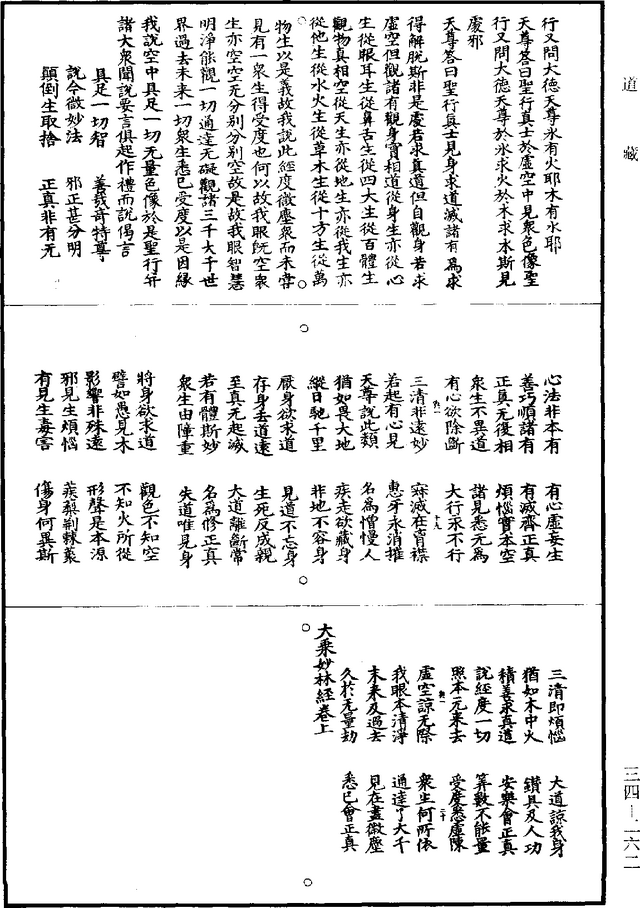 道藏
行又問大德天尊氷有火耶木有水耶
天尊答曰聖行真士於虛空中見衆色像聖
行又問大德天尊於氷求火於木求水斯見
處邪
天尊答曰聖行真士見身求道滅諸有為求
得解脫斯非是處若求真道但自觀身若求
虛空但觀諸有觀身實相道從身生亦從心
生從眼耳生從鼻舌生從四大生從百體生
觀物真相空從天生亦從地生亦從我生亦
從他生從水火生從草木生從十方生從萬
物生以是義故我說此經度微塵衆而未嘗
見有一衆生得受度也何以故我眼既空衆
生亦空空无分別分別空故是故我眼智慧
明淨能觀一切通達无礙觀諸三千大千世
界過去未來一切衆生悉已受度以是因緣
我說空中具足一切无量色像於是聖行并
諸大衆聞說要言俱起作禮而說偈言
具足一切智 善哉奇特尊
說合微妙法 邪正甚分明
顛倒生取捨 正真非有无
心法非本有 有心虛妄生
善巧順諸有 有滅齊正真
正真无復相 煩惱實本空
衆生不異道 諸見悉无為
有心欲除斷 大行永不行
三清非遠妙 寂滅在胷襟
若起有心見 惠牙永消摧
天尊說此類 名為憎慢人
猶如畏大地 疾走欲藏身
縱日馳千里 非地不容身
厭身欲求道 見道不忘身
存身去道遠 生死反成親
至真无起滅 大道離斷常
若有體斯妙 名為修正真
衆生由障重 失道唯見身
將身欲求道 觀色不知空
譬如愚見木 不知火所從
影響非殊遠 形聲是本源
邪見生煩惱 蒺蔾荆棘藂
有見生毒害 傷身何異斯
三清即煩惱 大道諒我身
猶如木中火 鑽具及人功
積善求真道 安樂會正真
說經度一切 筭數不能量
照本元來去 受度悉虛陳
虛空諒无際 衆生何所依
我眼本清淨 通達了大千
未來及過去 見在盡微塵
久於无量劫 悉已會正真
大乘妙林經卷上
三四—二六二